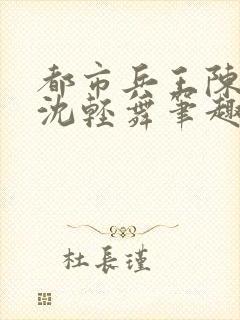 都市兵王陳
沈輕舞筆趣
杜長瑾